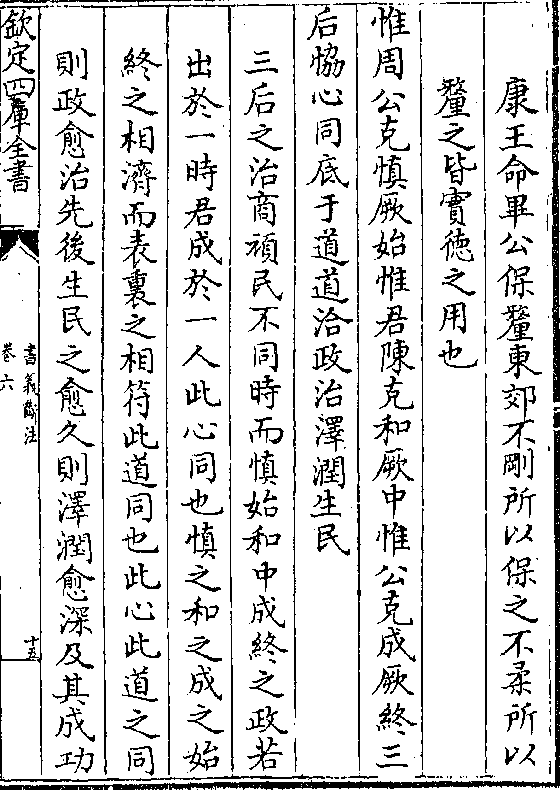 康王命畢公保釐東郊不剛所以保之不柔所以
釐之皆實徳之用也
惟周公克慎厥始惟君陳克和厥中惟公克成厥終三
后恊心同底于道道洽政治澤潤生民
三后之治商頑民不同時而慎始和中成終之政若
出於一時君成於一人此心同也慎之和之成之始
終之相濟而表裏之相符此道同也此心此道之同
則政愈治先後生民之愈久則澤潤愈深及其成功
欽定四庫全書
書義斷法
卷六
十五